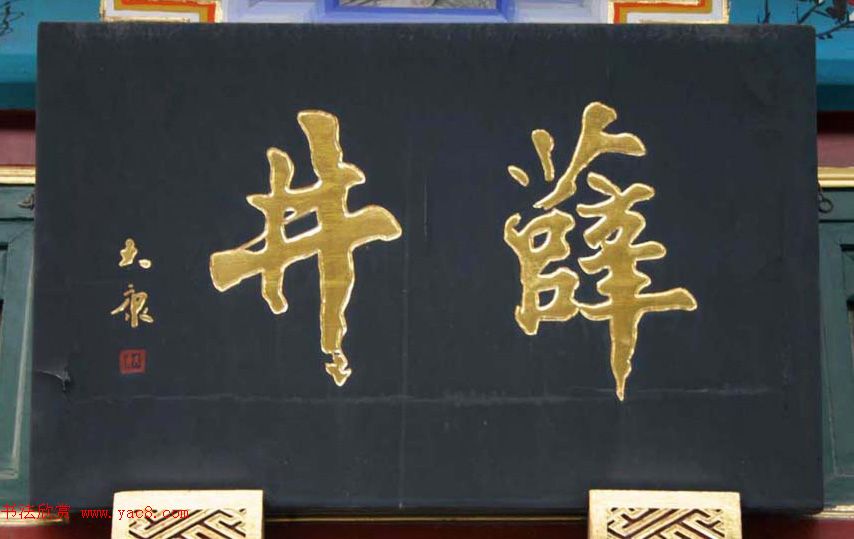 薛井
大康
书法欣赏 www.yac8.com